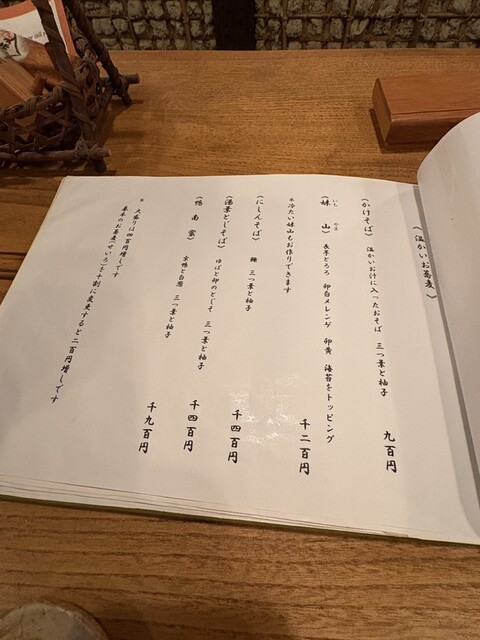 （温かいお蕎麦）
（かけそば）　温かいお汁に入ったおそば　三つ葉と柚子　九百円
（妹　山）　長芋とろろ　卵白メレンゲ　卵黄　海苔をトッピング　千二百円
いも　やま
※冷たい妹山もお作りできます
（にしんそば）　鰊　三つ葉と柚子　千四百円
（湯葉とじそば）　ゆばと卵のとじそ　三つ葉と柚子　千四百円
（鴨　南　蛮）　京鴨と白葱　三つ葉と柚子　千九百円
※　大盛りは四百円増しです
基本のお蕎麦（せいろ）を十割に変更すると二百円増しです